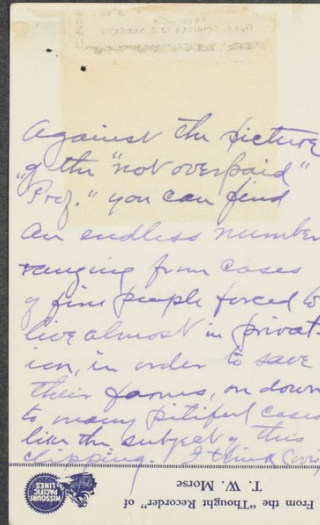 Against the picture
of the "not overpaid"
Prof." you can find
an endless number
ranging from cases
of fine people forced to
live almost in privat-
ion, in order to save
their farms, on down
to many pitiful cases
like the subject of this
clipping. I think
From the "Thought Recorder" of
T. W. Morse
MISSOURI
PACIFIC
LINES